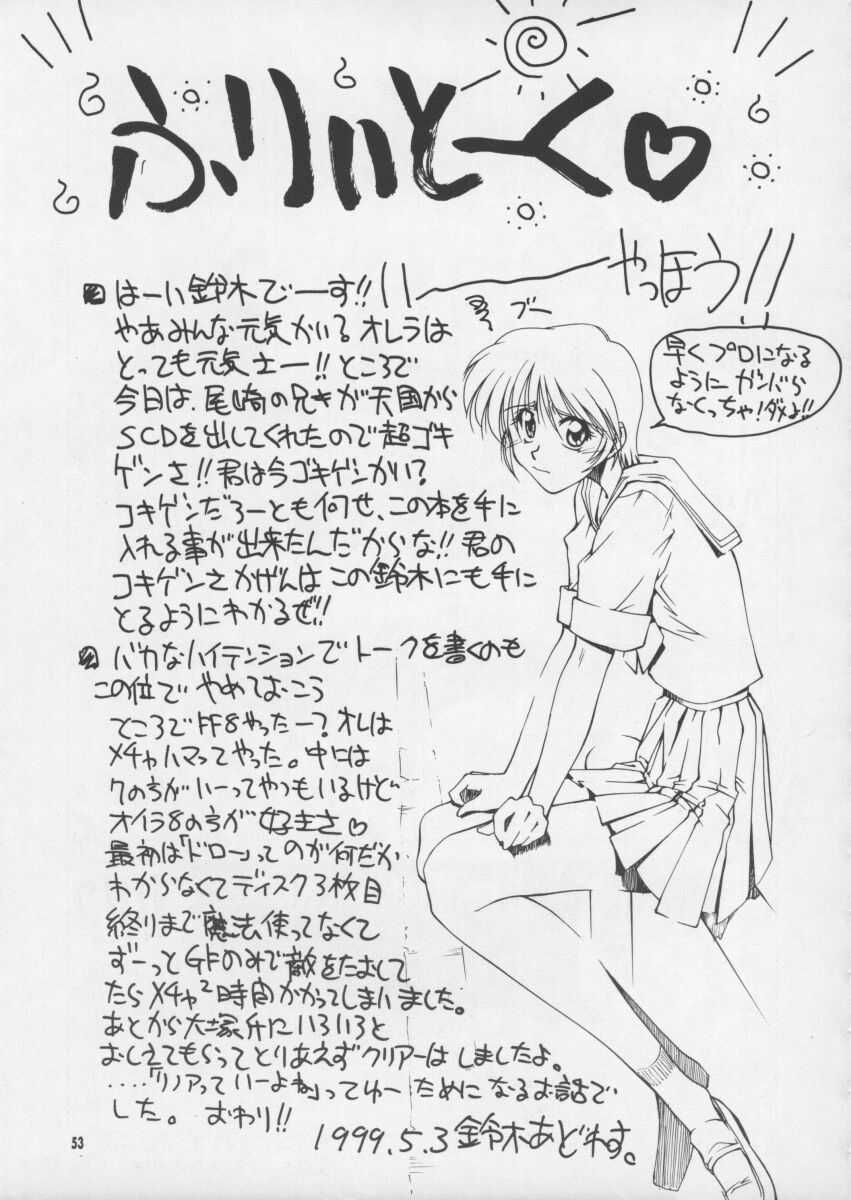 ふりぃとーく♡
やっほう!!
ブー
早くプロになる
ように ガンバら
なくっちゃ!ダメよ!!
はーい 鈴木でーす!!
やあみんな元気かい？ オレラは
とっても元気さー!! ところで
今日は、尾崎の兄きが天国から
SCDを出してくれたので超ゴキ
ゲンさ!! 君は今ゴキゲンかい？
ゴキゲンだろーとも何せ、この本を手に
入れる事が出来たんだからな!! 君の
ゴキゲンさかげんは この鈴木にも手に
とるようにわかるぜ!!
バカなハイテンションでトークを書くのも
この位で やめておこう
ところでFF8やったー？ オレは
メチャハマってやった。中には
7の方がいーってやつもいるけど
オイラ8の方が 好きさ♡
最初は「ドロー」ってのが何だか
わからなくてディスク3枚目
終りまで魔法使ってなくて
ずーっとGFのみで敵をたおして
たらメチャ²時間かかってしまいました。
あとから大塚氏にいろいろと
おしえてもらってとりあえずクリアーはしましたよ。
‥‥「リノアっていーよね」ってゆー ためになるお話で
した。 おわり!!
1999.5.3 鈴木あどれす。
53